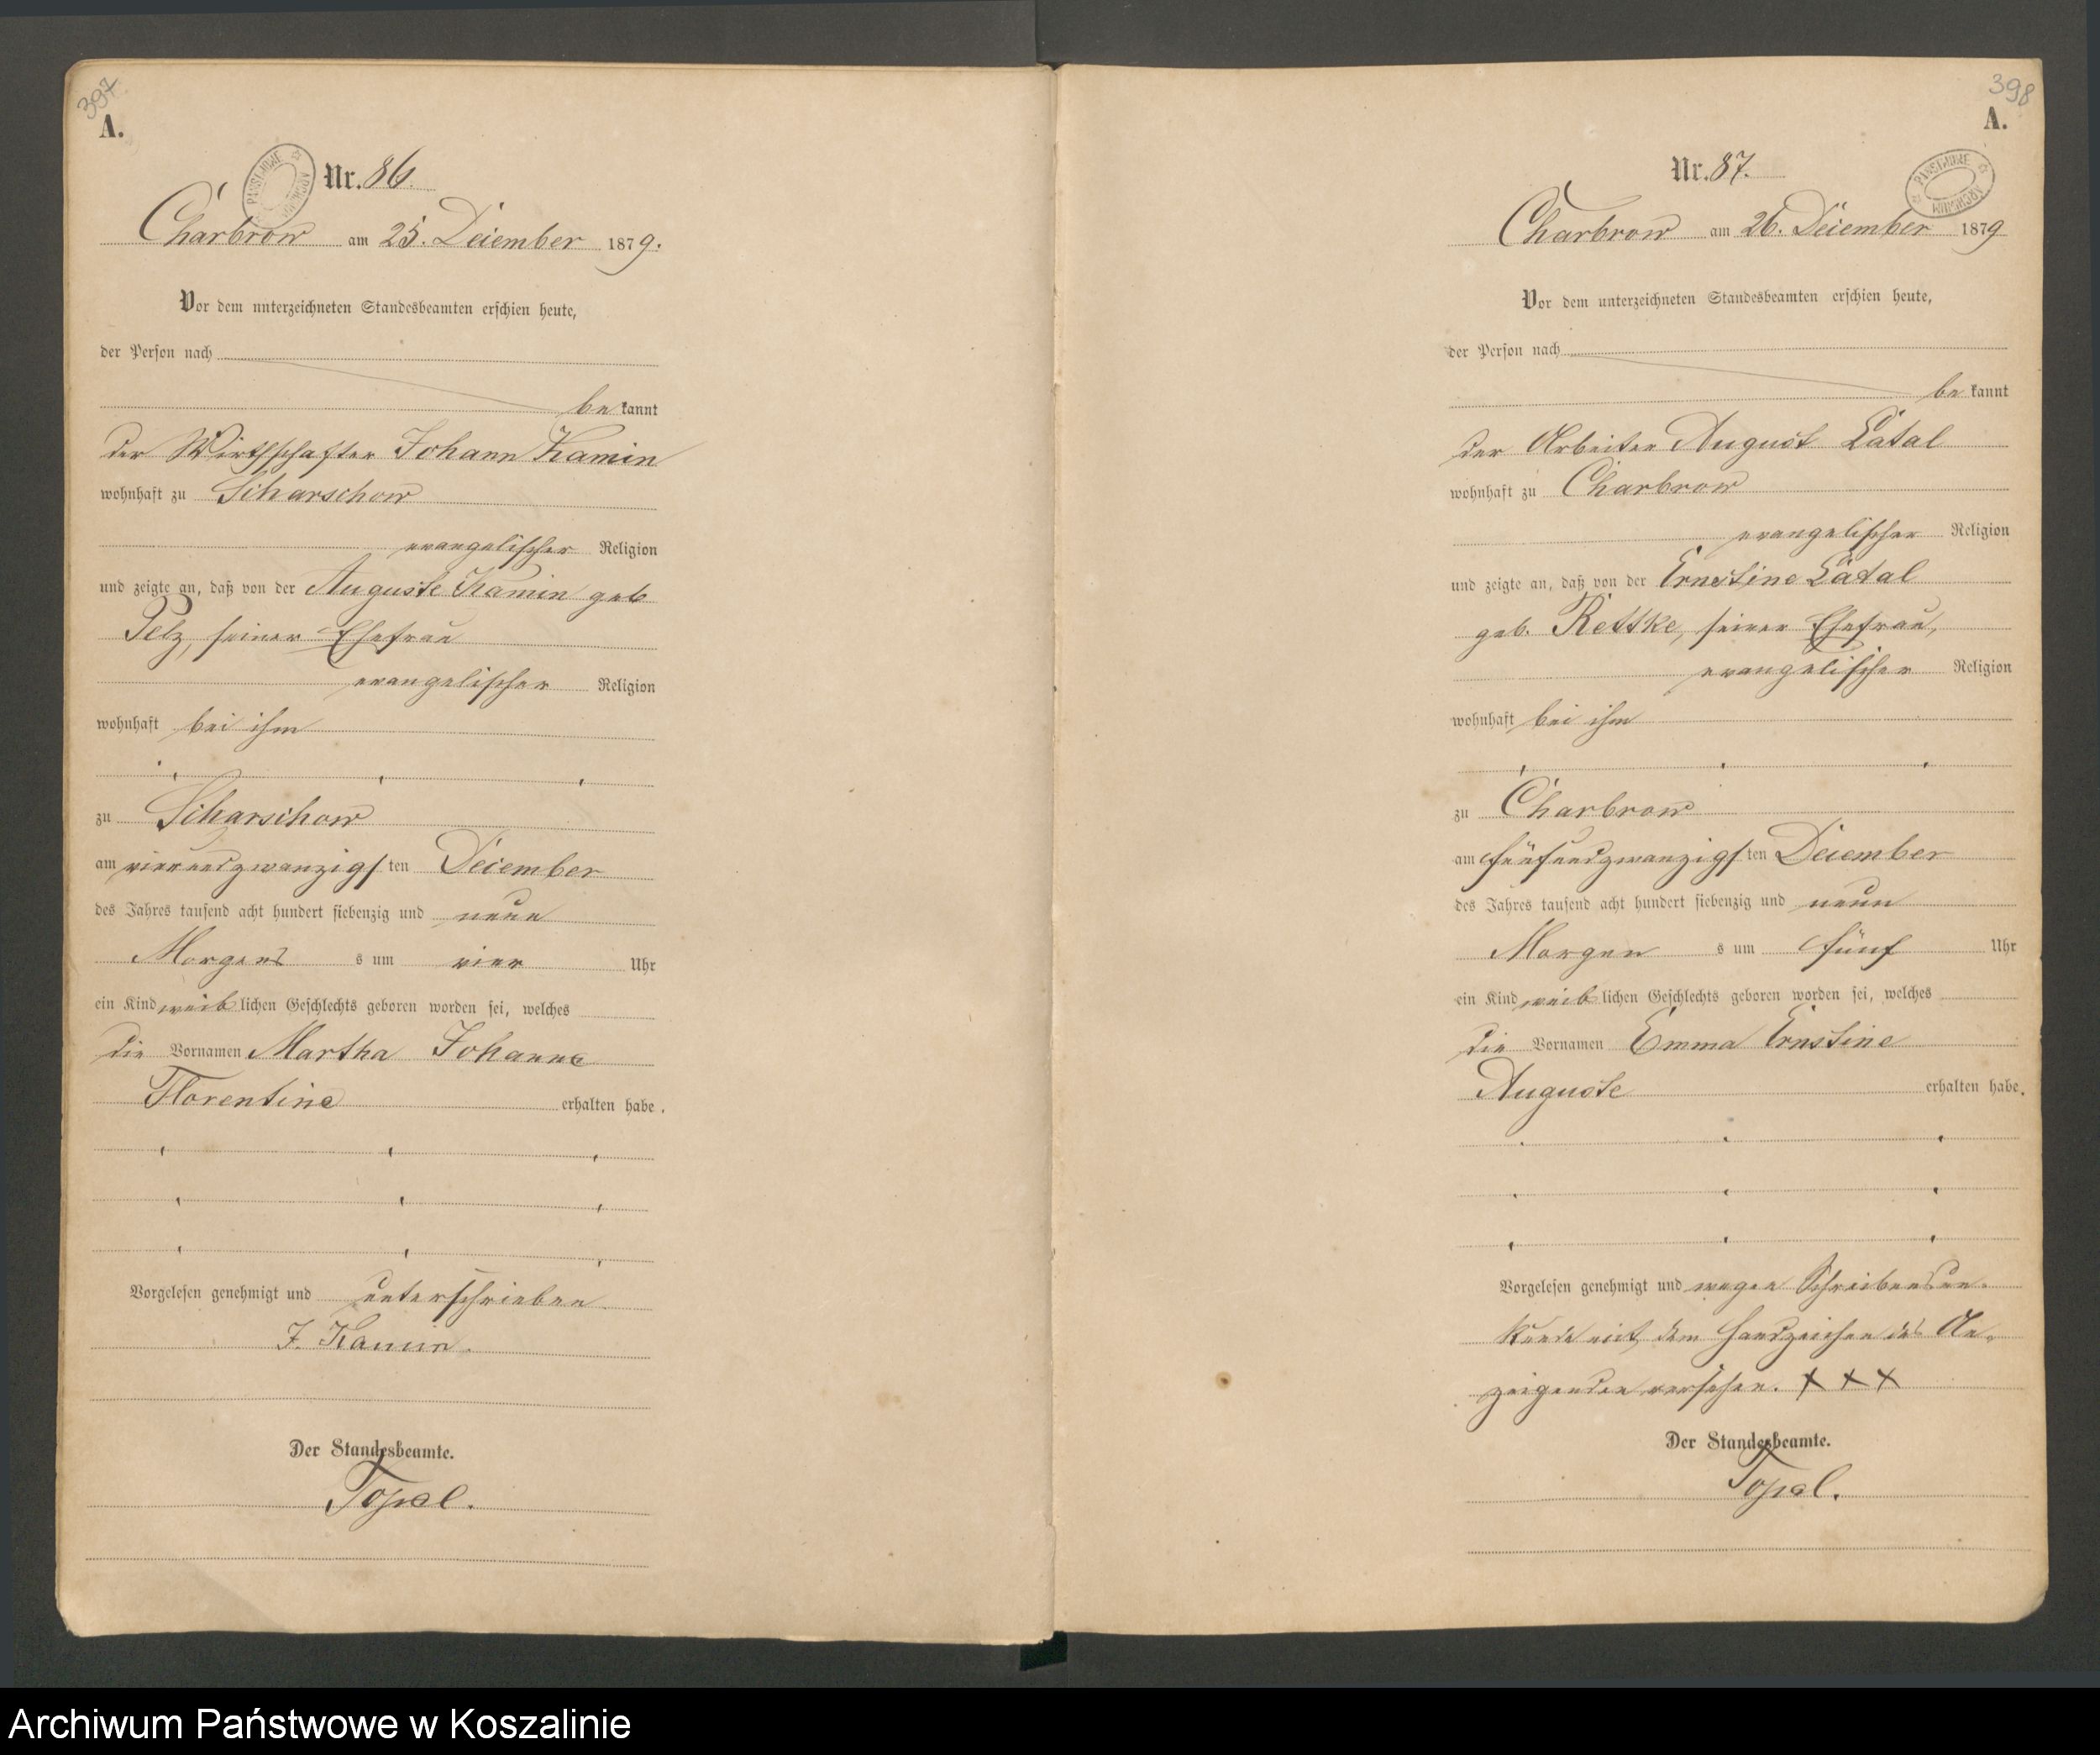 397
A.
PANSTWOWE ARCHIWUM
Nr. 86.
Charbrow am 25. December 1879.
Vor dem unterzeichneten Standesbeamten erschien heute,
der Person nach
be kannt
der Wirthschafter Johann Kamin
wohnhaft zu Scharschow
evangelischer Religion
und zeigte an, daß von der Auguste Kamin geb
Pelz, seiner Ehefrau
evangelischer Religion
wohnhaft bei ihm
zu Scharschow
am vierundzwanzigs ten December
des Jahres tausend acht hundert siebenzig und neun
Morgens s um vier Uhr
ein Kind weib lichen Geschlechts geboren worden sei, welches
die Vornamen Martha Johanne
Florentine erhalten habe.
Vorgelesen genehmigt und unterschrieben
J. Kamin.
Der Standesbeamte.
Topel.
398
A.
PANSTWOWE ARCHIWUM
Nr. 87.
Charbrow am 26. December 1879
Vor dem unterzeichneten Standesbeamten erschien heute,
der Person nach
be kannt
der Arbeiter August Latal
wohnhaft zu Charbrow
evangelischer Religion
und zeigte an, daß von der Ernestine Latal
geb. Rettke, seiner Ehefrau,
evangelischer Religion
wohnhaft bei ihm
zu Charbrow
am fünfundzwanzigs ten December
des Jahres tausend acht hundert siebenzig und neun
Morgen s um fünf Uhr
ein Kind weib lichen Geschlechts geboren worden sei, welches
die Vornamen Emma Ernstine
Auguste erhalten habe.
Vorgelesen genehmigt und wegen Schreibensun-
kunde mit dem Handzeichen des An-
zeigenden versehen. + + +
Der Standesbeamte.
Topel.
Archiwum Państwowe w Koszalinie